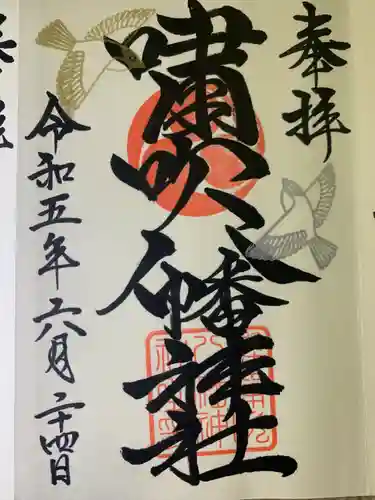 奉拝
嘯吹八幡神社
令和五年六月二十四日